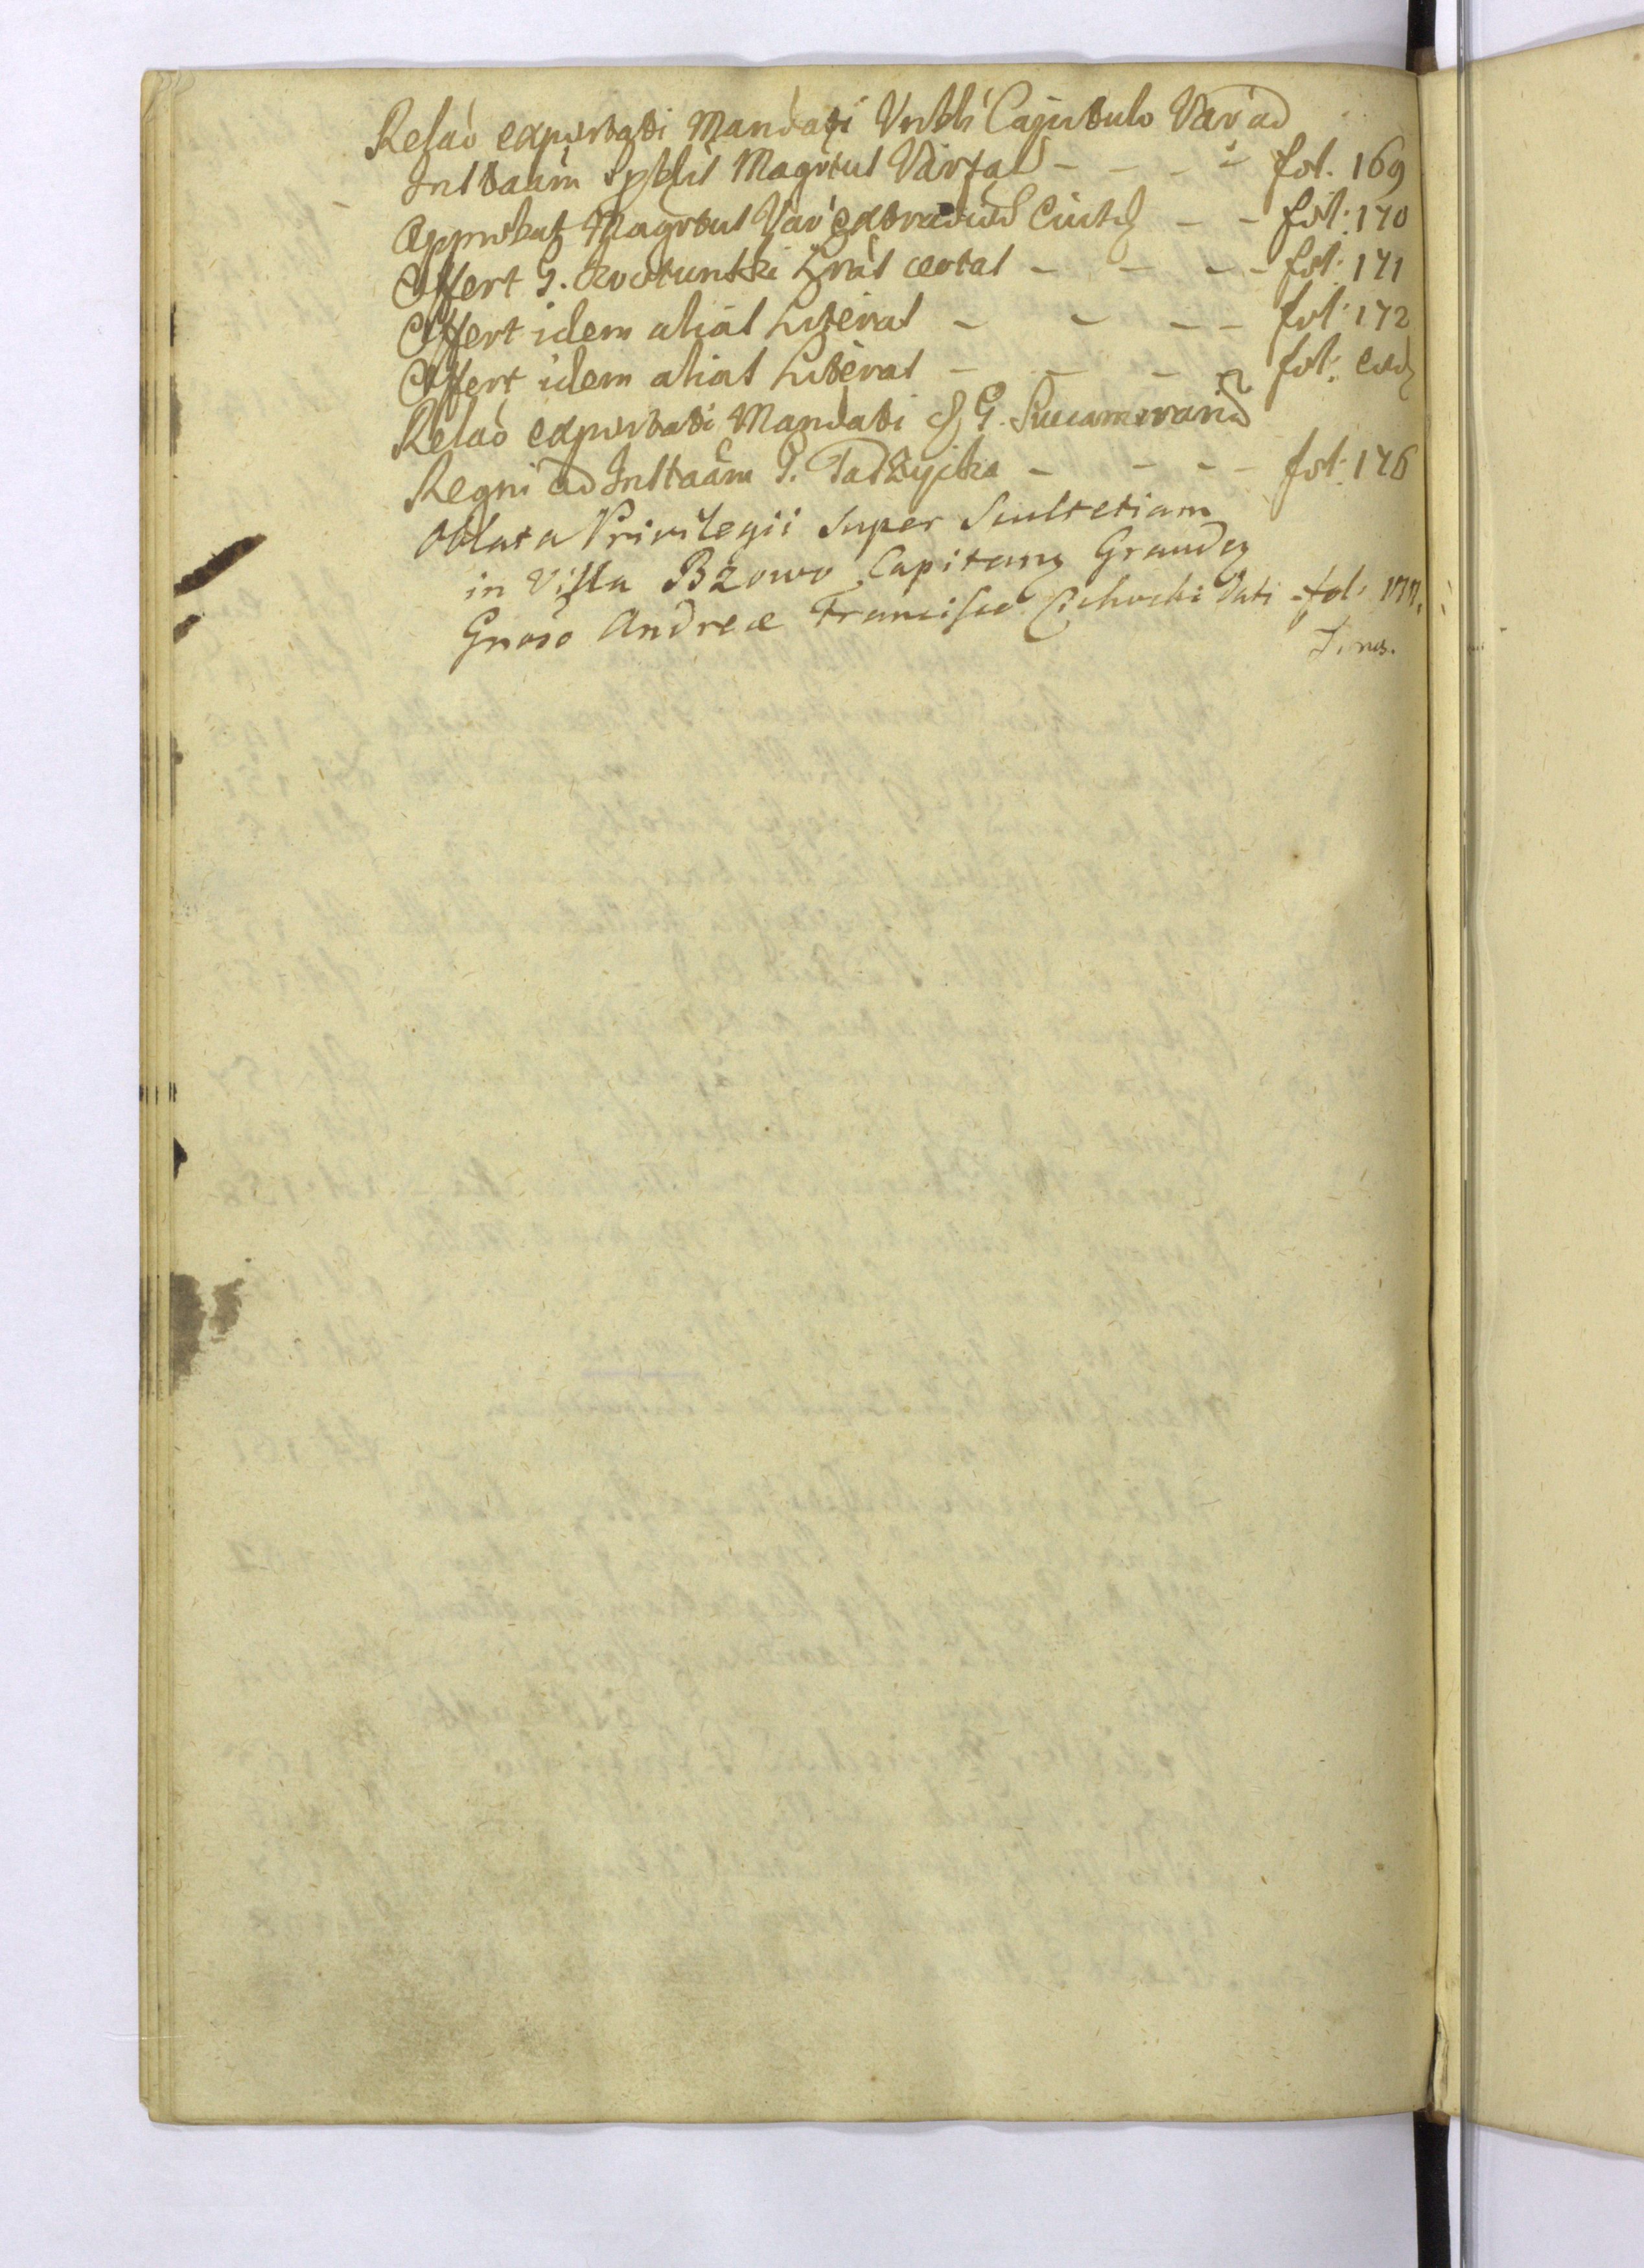 Relaõ exportati Mandati Vnbli Capitulo Var ad
Instaam Spblis Magrtus Varsa - - - fol. 169
Approbat Magrtus Var extradicõ Ciute - - fol: 170
Offert G. Lrãs certas - - - - fol: 171
Offert idem alias Literas - - - - fol: 172
Offert idem alias Literas - - - fol: eod
Relaõ exportati Mandati G. Succamerarid
Regni ad Instaam G. Tadzycka - - - - fol: 176
Oblata Privilegii super Scultetiam
in Villa Bzowo, Capitan Graudz
Gnoso Andreæ Francisco Cichocki dati - fol: 177.